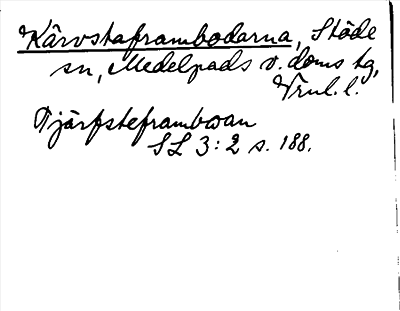 Kärvstaframbodarna, Stöde
sn, Medelpads v. doms tg,
Vrnl. l.
Tjärfsteframbwan
SL 3:2 s. 188.